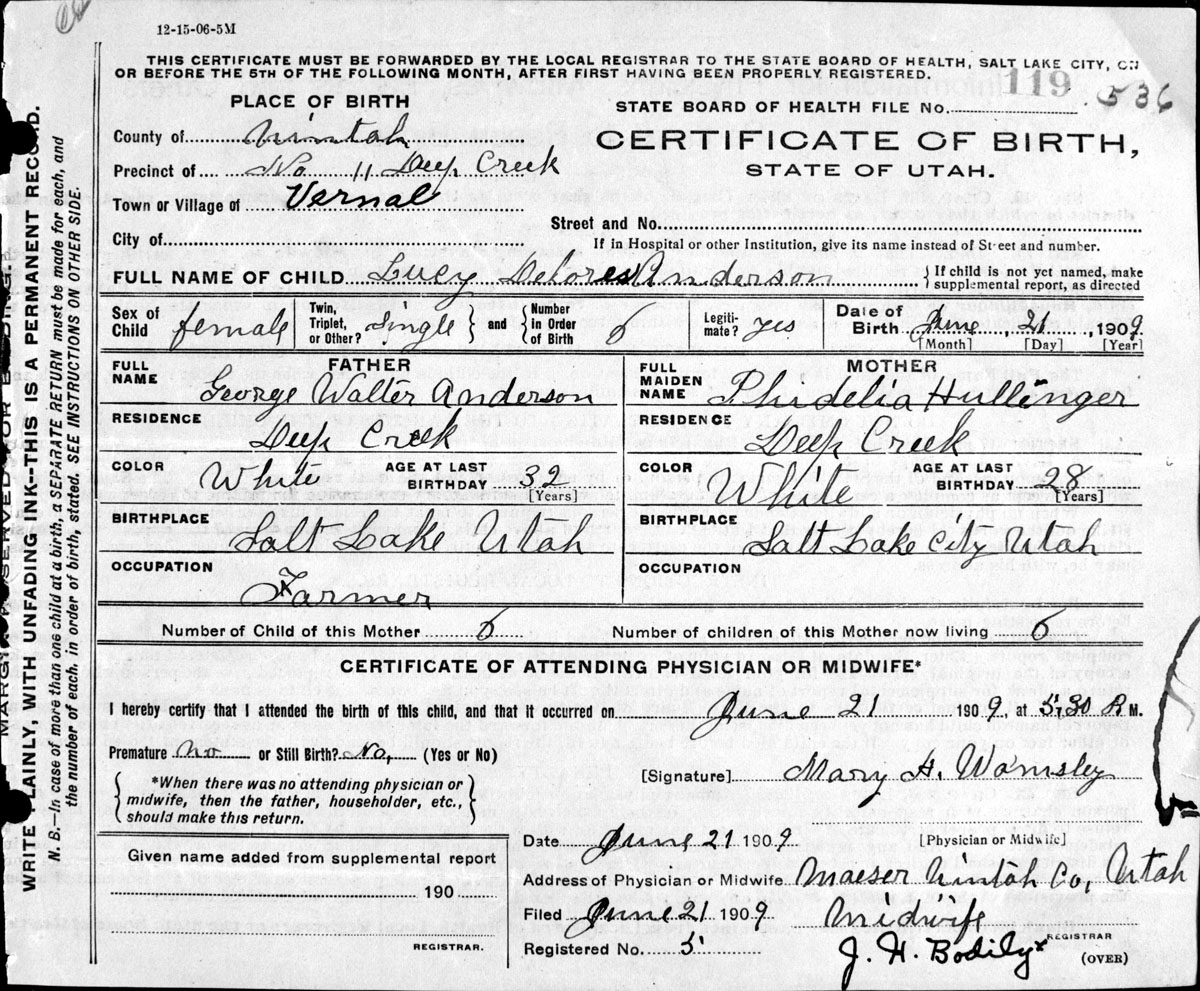 12-15-06-5M
THIS CERTIFICATE MUST BE FORWARDED BY THE LOCAL REGISTRAR TO THE STATE BOARD OF HEALTH, SALT LAKE CITY, ON
OR BEFORE THE 5TH OF THE FOLLOWING MONTH, AFTER FIRST HAVING BEEN PROPERLY REGISTERED.
PLACE OF BIRTH
STATE BOARD OF HEALTH FILE No. 119 536
County of Uintah
CERTIFICATE OF BIRTH,
STATE OF UTAH.
Precinct of No 11 Deep Creek
Town or Village of Vernal
Street and No.
City of
If in Hospital or other Institution, give its name instead of Street and number.
FULL NAME OF CHILD Lucy Delores Anderson } If child is not yet named, make supplemental report, as directed
Sex of Child female Twin, Triplet, or Other? Single } and { Number in Order of Birth 6 Legiti-mate? yes Date of Birth June, 21, 1909
[Month] [Day] [Year]
FATHER
FULL NAME George Walter Anderson
RESIDENCE Deep Creek
COLOR White AGE AT LAST BIRTHDAY 32 [Years]
BIRTHPLACE Salt Lake Utah
OCCUPATION Farmer
MOTHER
FULL MAIDEN NAME Phidelia Hullinger
RESIDENCE Deep Creek
COLOR White AGE AT LAST BIRTHDAY 28 [Years]
BIRTHPLACE Salt Lake City Utah
OCCUPATION
Number of Child of this Mother 6 Number of children of this Mother now living 6
CERTIFICATE OF ATTENDING PHYSICIAN OR MIDWIFE*
I hereby certify that I attended the birth of this child, and that it occurred on June 21 1909, at 5:30 P.M.
Premature no or Still Birth? No, (Yes or No)
*When there was no attending physician or
midwife, then the father, householder, etc.,
should make this return.
[Signature] Mary H. Wamsley
Given name added from supplemental report
190
REGISTRAR.
Date June 21 1909 [Physician or Midwife]
Address of Physician or Midwife Maeser Uintah Co, Utah
Filed June 21 1909 Midwife
Registered No. 5 J. H. Bodily REGISTRAR
(OVER)
WRITE PLAINLY, WITH UNFADING INK--THIS IS A PERMANENT RECORD.
N. B.—In case of more than one child at a birth, a SEPARATE RETURN must be made for each, and
the number of each, in order of birth, stated. SEE INSTRUCTIONS ON OTHER SIDE.